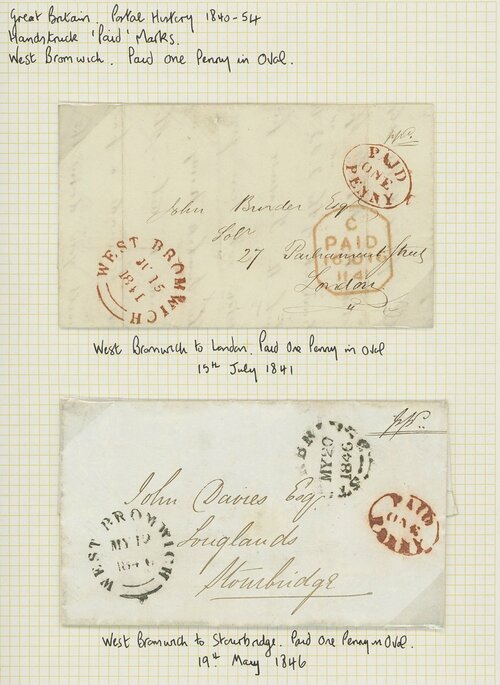 Great Britain. Postal History 1840-54
Handstruck 'Paid' Marks.
West Bromwich. Paid One Penny in Oval.
pp.
PAID
ONE
PENNY
John Burder Esqr
Solr
27 Parliament Street
London
C
PAID
1841
WEST BROMWICH
JY 15
1841
West Bromwich to London. Paid One Penny in Oval
15th July 1841
pp.
MY 20
1846
John Davies Esq.
Longlands
Stourbridge
PAID
ONE
PENNY
WEST BROMWICH
MY 19
1846
West Bromwich to Stourbridge. Paid One Penny in Oval.
19th May 1846